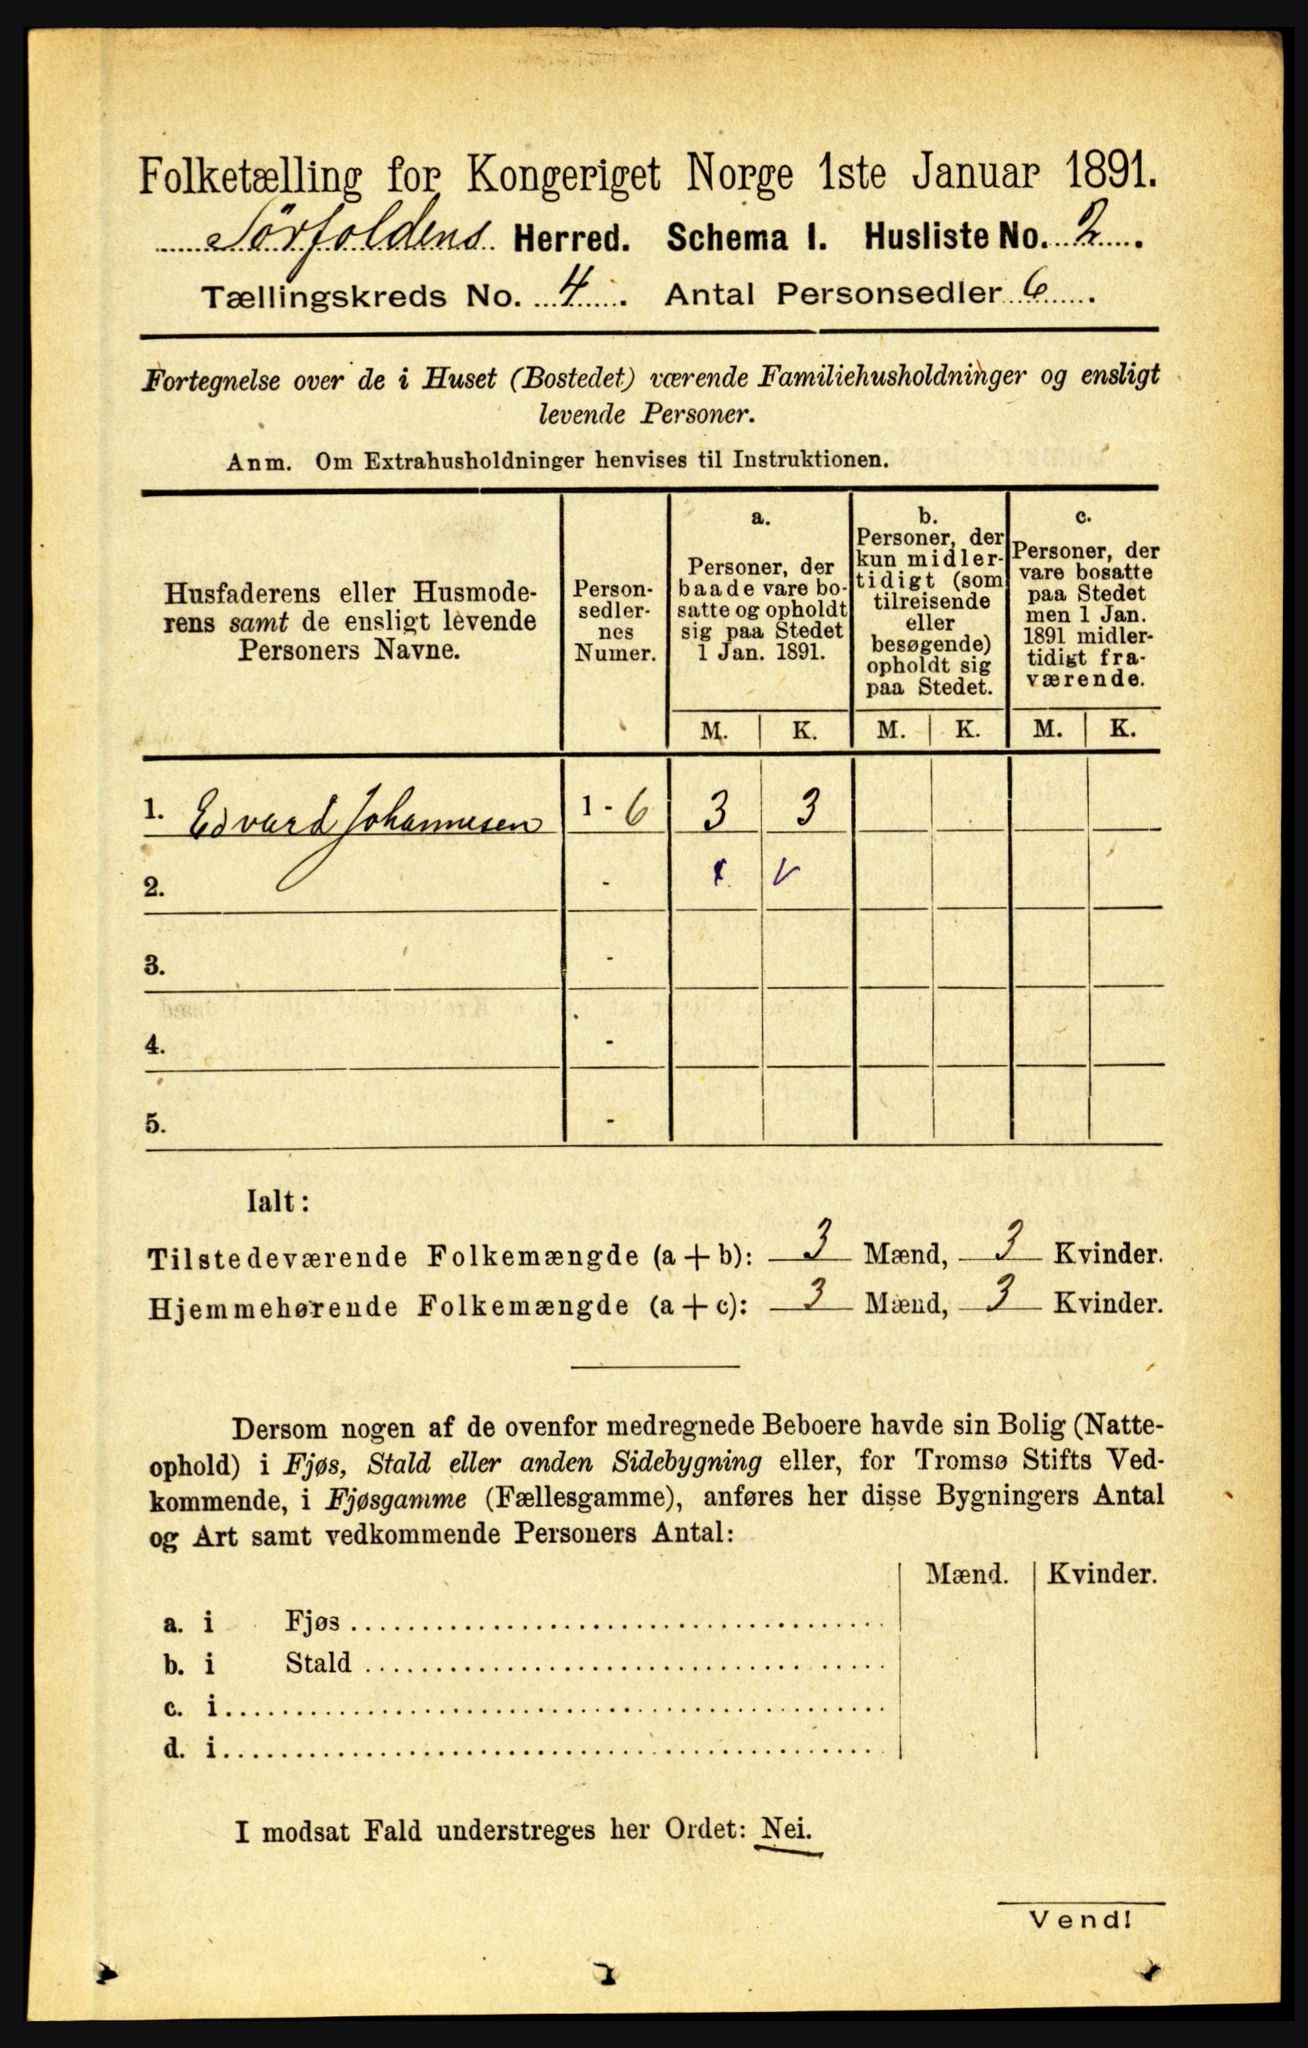 Folketælling for Kongeriget Norge 1ste Januar 1891.
Sörfoldens Herred. Schema 1. Husliste No. 2.
Tællingskreds No. 4. Antal Personsedler 6.
Fortegnelse over de i Huset (Bostedet) værende Familiehusholdninger og ensligt
levende Personer.
Anm. Om Extrahusholdninger henvises til Instruktionen.
Husfaderens eller Husmode-
rens samt de ensligt levende
Personers Navne.
Person-
sedler-
nes
Numer.
a.
Personer, der
baade vare bo-
satte og opholdt
sig paa Stedet
1 Jan. 1891.
b.
Personer, der
kun midler-
tidigt (som
tilreisende
eller
besøgende)
opholdt sig
paa Stedet.
c.
Personer, der
vare bosatte
paa Stedet
men 1 Jan.
1891 midler-
tidigt fra-
værende.
M. K. M. K. M. K.
1. Edvard Johannesen 1 - 6 3 3
2. -
3. -
4. -
5. -
Ialt:
Tilstedeværende Folkemængde (a + b): 3 Mænd, 3 Kvinder.
Hjemmehørende Folkemængde (a + c): 3 Mænd, 3 Kvinder.
Dersom nogen af de ovenfor medregnede Beboere havde sin Bolig (Natte-
ophold) i Fjøs, Stald eller anden Sidebygning eller, for Tromsø Stifts Ved-
kommende, i Fjøsgamme (Fællesgamme), anføres her disse Bygningers Antal
og Art samt vedkommende Personers Antal:
Mænd. Kvinder.
a. i Fjøs
b. i Stald
c. i
d. i
I modsat Fald understreges her Ordet: Nei.
Vend!